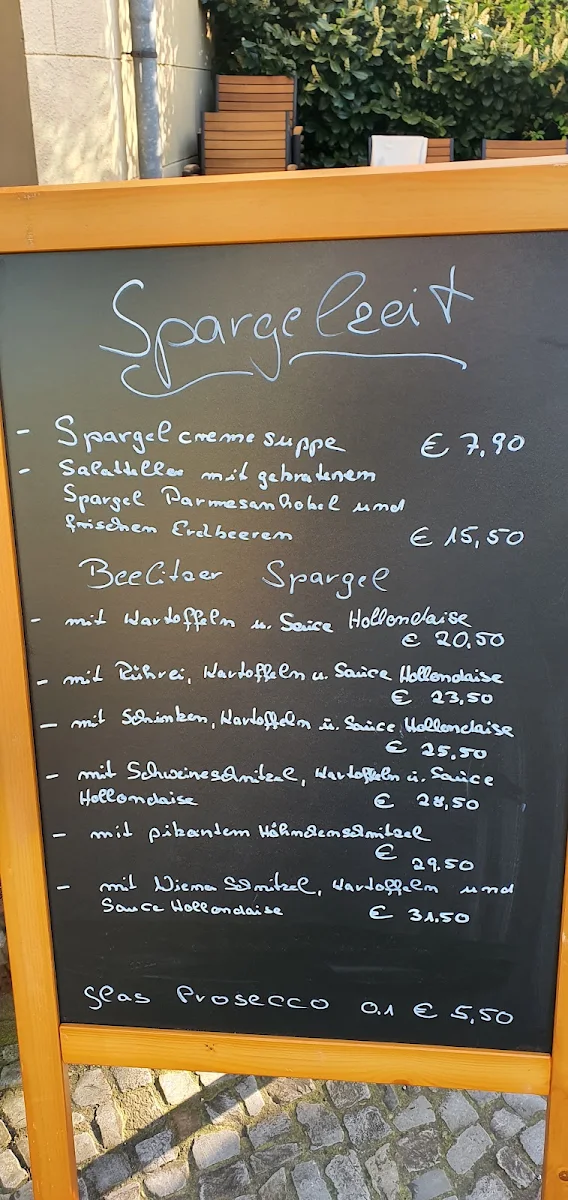 Spargelzeit
- Spargelcremesuppe € 7,90
- Salatteller mit gebratenem
Spargel Parmesanhobel und
frischen Erdbeeren € 15,50
Beelitzer Spargel
- mit Kartoffeln u. Sauce Hollondaise
€ 20,50
- mit Rührei, Kartoffeln u. Sauce Hollondaise
€ 23,50
- mit Schinken, Kartoffeln u. Sauce Hollondaise
€ 25,50
- mit Schweineschnitzel, Kartoffeln u. Sauce
Hollondaise € 28,50
- mit pikantem Hähnchenschnitzel
€ 29.50
- mit Wiener Schnitzel, Kartoffeln und
Sauce Hollondaise € 31.50
Glas Prosecco 0.1 € 5,50